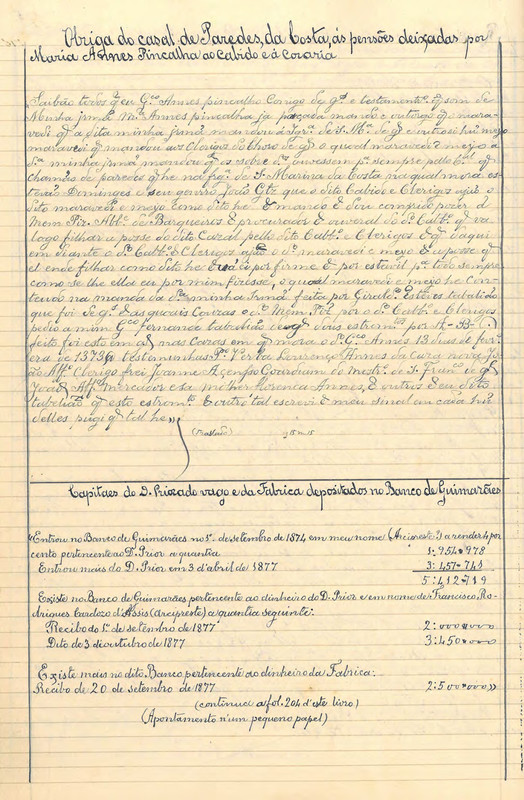 Obriga do casal de Paredes, da Costa, ás pensões deixadas por
Maria Annes Pincalha ao Cabido e á Coraria
Saibão todos q̃ eu G.ço Annes pincalho Conigo de g.es e testament.ro q̃ som de
Minha jrmã M.a Annes pincalha ja passada mando e outorgo q̃ mara-
vedi q̃ a dita minha jrmã mandou á Igr.a de S. M.a de g.es e outrosi hũ mejo
maravedi q̃ mandou aos Clerigos do Choro de g.es o qual maravedi e mejo á
d.ta minha jrmã mandou q̃ os sobre d.tos ouvessem p.a sempre pello C.al q̃
chamão de paredes q̃ he na frg.a de S. Marina da Costa na qual mora es-
tevão Dminges e seu genrro João Glz que o dito Cabido e Clerigos ajão o
dito maravedi e mejo como dito he & mando & dou comprido poder a
Mem Piz. Abb.e de Barqueiros & procurador & ouveral do d.to Cabb.o q̃ va
logo filhar a posse do dito Cazal pello dito Cabb.o e Clerigos & q̃ daqui
em diante o d.to Cabb.o & Clerigos ajão o d.to maravedi e mejo & a posse q̃
el ende filhar como dito he eu a ei por firme & por estavil p.a todo sempre
como se lhe ella eu por mim fizesse, o qual maravedi e mejo he con-
teudo na manda da d.ta minha Irmã feita por Giral.o Esteves tabaliõ
que foi de g.es das quais couzas o d.to Mem Piz por o d.to Cabb.o e Clerigos
pedio a mim G.ço Fernandes tabaliaõ de g.es dous estrom.tos por A-B-C.
feito foi esto em g.es nas Cazas em q̃ mora o d.to G.ço Annes 13 dias de fever.
era de 1373 testemunhas
João Aff.o Clerigo frei Joanne Açenso Gourdiam do mostr.o de S. Fran.co de g.es
João Aff.o Mercador e sa molher Lorença Annes, & outros & eu dito
tabaliaõ q̃ esto estrom.to & outro tal escrevi & meu sinal em cada hũ
delles pugi q̃ tal he»
(Traslado)
Capitaes do D. Priorado vago e da Fabrica depositados no Banco de Guimarães
"Entrou no Banco de Guimarães no 1.º de setembro de 1874 em meu nome (Arcipreste?) a render 4 por
cento pertencente ao D. Prior a quantia 1:954#978
Entrou mais do D. Prior em 3 d'abril de 1877 3:457#741
5:412#719
Existe no Banco de Guimarães pertencente ao dinheiro do D. Prior e em nome de Francisco Ro-
driques Cardozo d'Assis (arcipreste) a quantia seguinte:
Recibo do 1.º de setembro de 1877 2:000#000
Dito de 3 de outubro de 1877 3:450#000
Existe mais no dito Banco pertencente ao dinheiro da Fabrica:
Recibo de 20 de setembro de 1877 2:500#000»
(continua a fol. 204 d'este livro)
(Apontamento n'um pequeno papel)